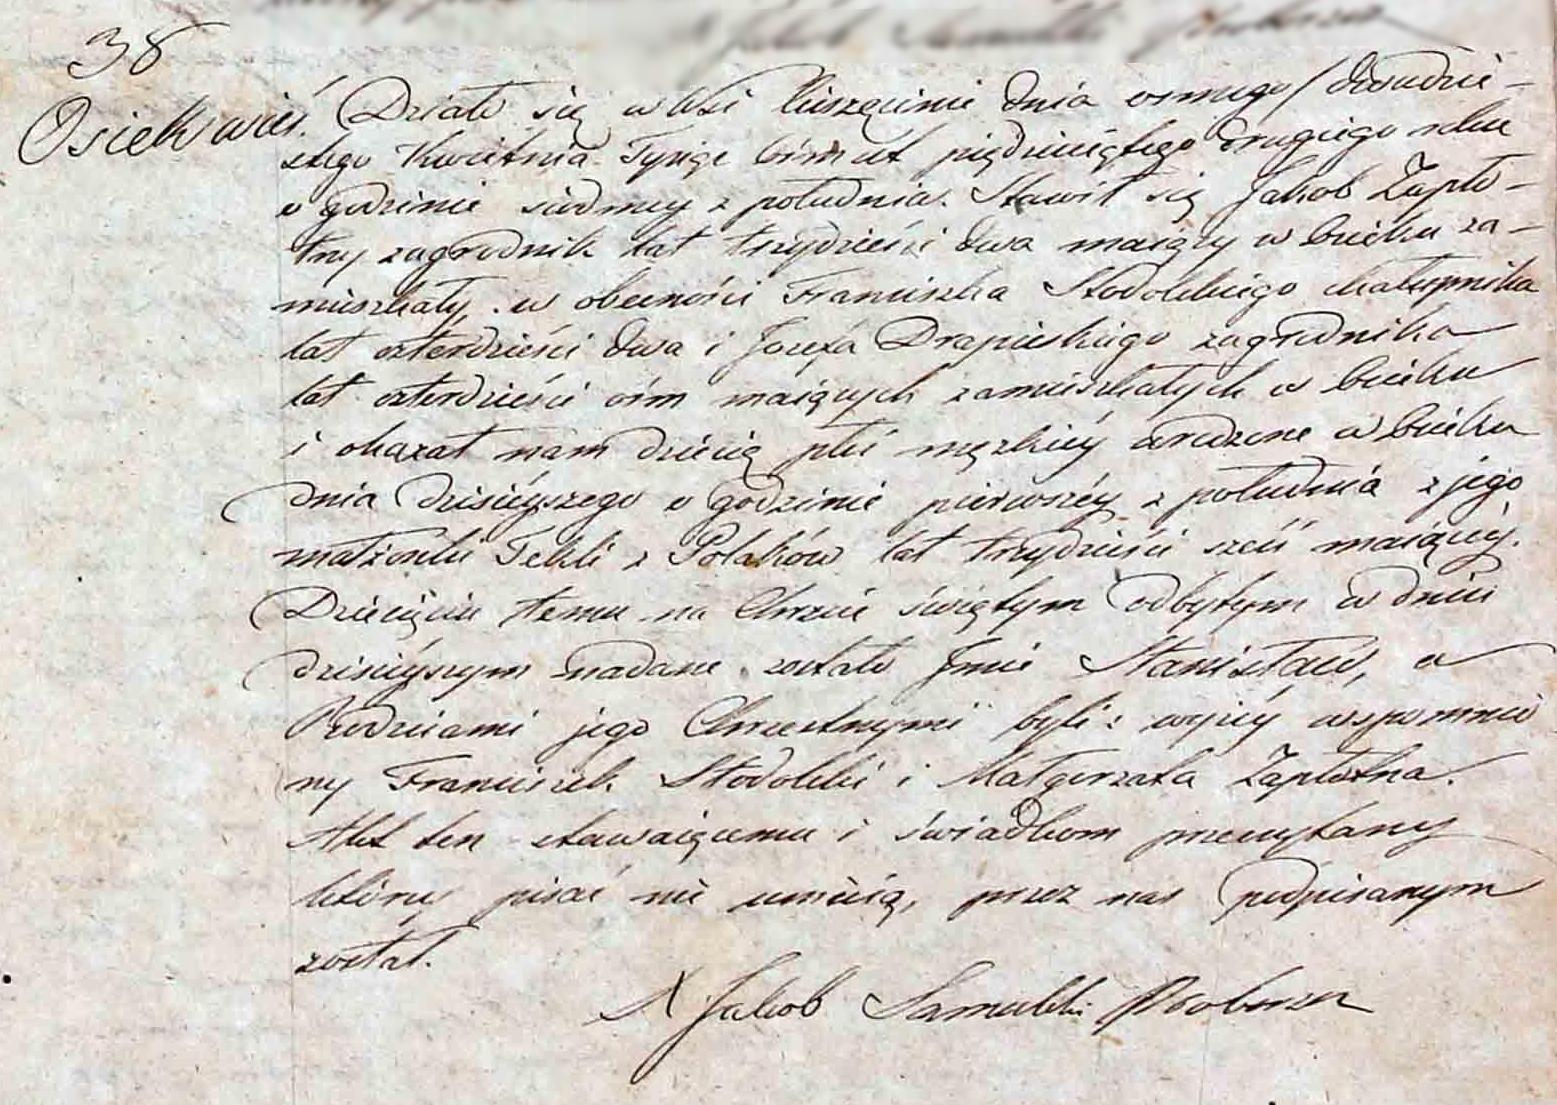 38
Osiek wieś. Działo się w Wsi dnia osmego / dwudzie-
stego Kwietnia Tysiąc ośm set pięćdziesiątego drugiego roku
o godzinie siodmey z południa. Stawił się Jakob Zapło-
tny zagrodnik lat trzydzieści dwa maiący w Osieku za-
mieszkały, w obecności Franciszka Stodolskiego chałupnika
lat czterdzieści dwa i Jozefa Drapieskiego zagrodnika
lat czterdzieści ośm maiących zamieszkałych w Osieku
i okazał nam dziecię płci męzkiéy urodzone w Osieku
dnia dzisiéyszego o godzinie pierwszéy z południa z jego
małżonki Tekli z Polaków lat trzydzieści sześć maiącéy.
Dziecięciu temu na Chrzcie świętym odbytym w dniu
dzisiéyszym nadane zostało Jmie Stanisław, a
Rodzicami jego Chrzestnymi byli: wyżéy wspomnio
ny Franciszek Stodolski i Małgorzata Zapłotna.
Akt ten stawaiącemu i świadkom przeczytany
którzy pisać nie umieią, przez nas podpisanym
został.
X Jakob Samulski Proboszcz